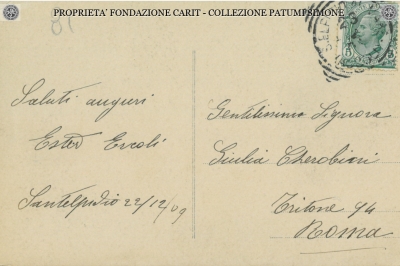 PROPRIETA' FONDAZIONE CARIT - COLLEZIONE PATUMI SIMONE
Saluti auguri
Ester Ercoli
Santelpidio 22/12/09
Gentilissima Signora
Giulia Cherobini
Tritone 94
Roma